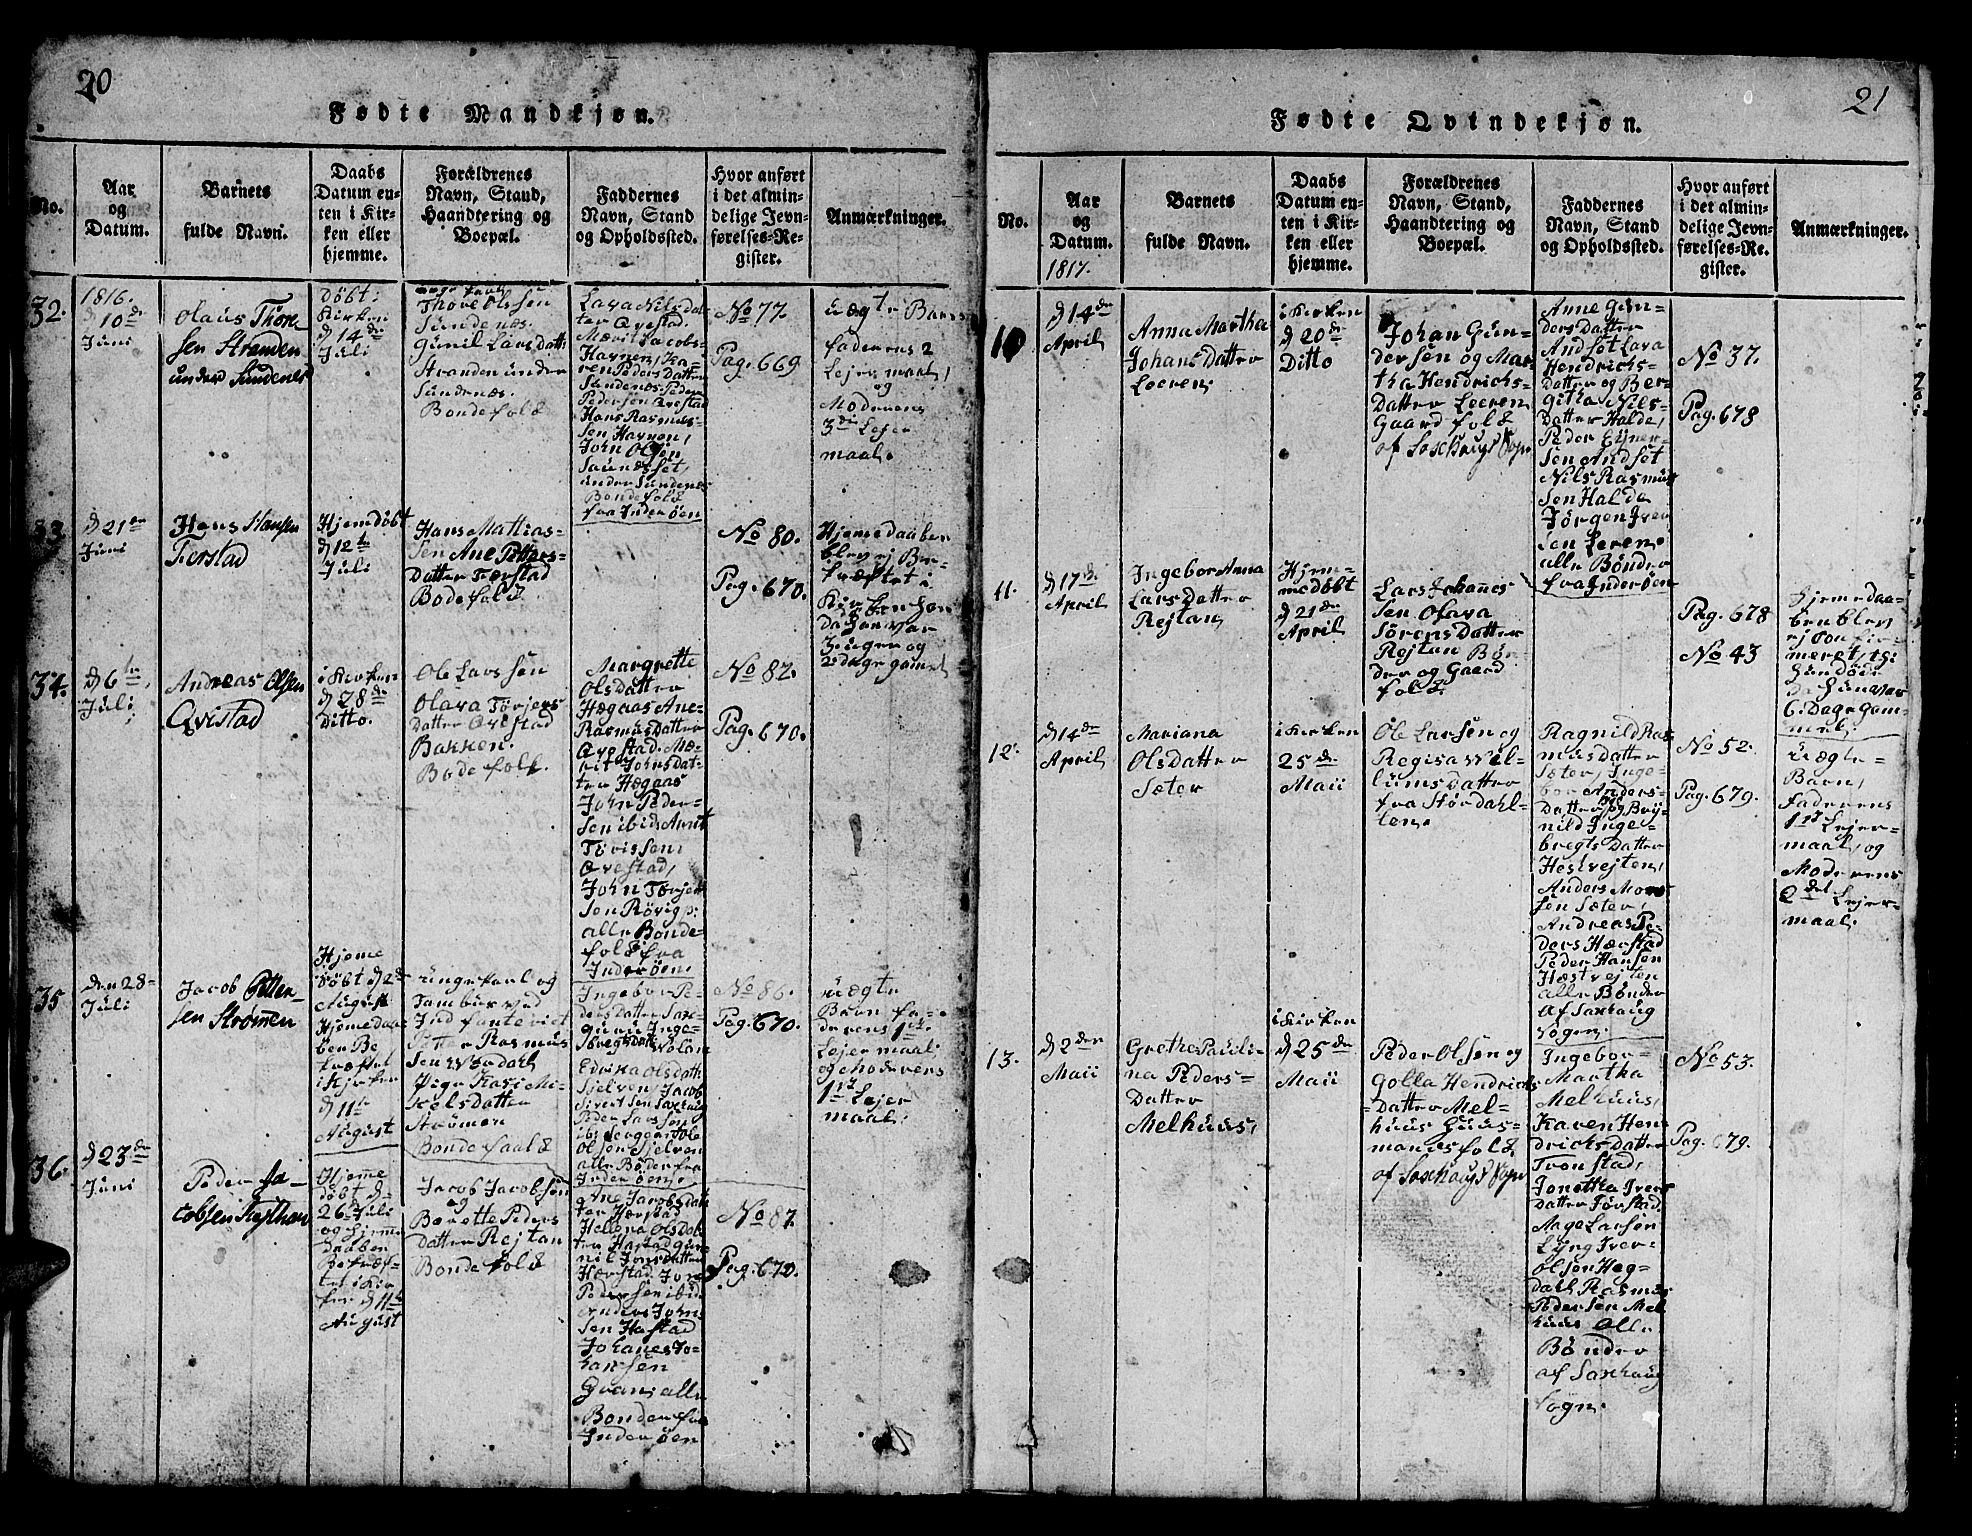 20
Fødte Mandkjøn.
No.
Aar
og
Datum.
Barnets
fulde Navn.
Daabs
Datum en-
ten i Kir-
ken eller
hjemme.
Forældrenes
Navn, Stand,
Haandtering og
Boepæl.
Faddernes
Navn, Stand
og Opholdssted.
Hvor anført
i det almin-
delige Jevn-
førelses-Re-
gister.
Anmærkninger.
32.
1816.
d 10de
Juni
Olaus Thore-
sen Stranden
under Sundenes
Døbt i
Kirken
d 14de
Juli
Thore Olssen
Sundenæs.
Gunil Larsdatter
Stranden under
Sundenæs.
Bondefolk
Lava Nilsdat-
ter Qvestad.
Mærit Jacobs-
Havnen, Ka-
ren Pedersdatter
Sundenæs Peder
Pedersen Qvestad
Hans Rasmus-
sen Havnen,
John Olsen
Saunesset,
under Sundenæs
Bondefolk
fra Inderøen
No 77.
Pag. 669
uægte Barn
faderens 2
Lejermaal,
og
Moderens
3de Lejer
maal.
33.
d 21de
Juni
Hans Hansen
Ferstad
Hjemdøbt
d 12te
Juli
Hans Mathias-
sen Ane Petters-
Datter Ferstad
Bodefolk
No 80.
Pag. 670.
Hjemedaaben
blev ej Be-
kræftet i
Kirken hen
da han var
3 uger og
2 dage gamel
34.
d 6te
Juli
Andreas Olsen
Qvistad
i Kirken
d 28de
Ditto.
Ole Larssen
Olava Törjers
datter Qvestad
Bakken.
Bodefolk
Margrette
Olsdatter
Hægaas Ane-
Rasmusdatter
Qvestad. Mæ-
rit Johnsdat-
ter Hægaas
John Peder-
sen ibid. Arnt
Törissen,
Qvestad,
John Törjer
sen Rövig p:
alle Bonde-
folk fra
Inderøen.
No 82.
Pag. 670.
35
den 28-
Juli
Jacob Petter-
sen Strømen
Hjeme
døbt d 2de
August
Hjemedaa-
ben Be
kræftet
i Kjrken
d 11te
August
Ungekarl og
Tambur ved
Indfanteriet
Petter Rasmus
sen Værdahl
Pige Kari Mi-
kelsdatter
Strömen
Bondefaalk
Ingebor Pe-
dersdatter Sax-
Edrika Olsdatt
Sjelven, Jacob
Sivertsen Saxhaug
Peder Larssen
Olsen Sjelven
alle Bøder fra
Inderøen.
No 86.
Pag. 670.
uægte
Barn fa-
derens 1ste
Lejermaal
og Moderens
1ste Lejer
maal.
36.
d 23de
Juni
Peder Ja-
cobsen Rejthan
Hjeme
døbt d-
26de Juli
og hjemme
daaben
Bekræf-
tet i Kir
ken d 11te
August
Jacob Jacobsen
og
Berette Peders
datter Rejtan
Bondefolk
Ane Jacobsdat
ter Hærstad
Hellena Olsdat
ter Hastad Gun-
nil Jonsdatter
Hærstad. Jon
Pedersen ibid.
Anders John-
sen Hastad
Johanes Jo-
hansen
Gran, alle
Bonder fra
Inderøen
No 87
Pag. 670.
21
Fødte Qvindekjøn.
No.
Aar
og
Datum.
1817.
Barnets
fulde Navn.
Daabs
Datum en-
ten i Kir-
ken eller
hjemme.
Forældrenes
Navn, Stand,
Haandtering og
Boepæl.
Faddernes
Navn, Stand
og Opholdssted.
Hvor anført
i det almin-
delige Jevn-
førelses-Re-
gister.
Anmærkninger.
10
d 14de
April
Anna Martha
Johans Datter
Leeren.
i Kirken
d 20de
Ditto
Johan Gun-
dersen og Mar-
tha Hendrichs-
Datter Leeren
Gaardfolk
af Saxhaugs Sogn
Anne Gun-
dersDatter
Andset Lava
Hendrichs-
Datter og Ber-
githa Nils-
Datter Halde,
Peder Ejner-
sen Andset
Nils Rasmus
sen Halde
Jörgen Iver
sen Leren.
alle Bönder
fra Inderøen
No 37.
Pag. 678
11.
d 17de
April
Ingebor Anna
LarsDatter
Rejtan,
Hjem-
medøbt
d 21de
April
Lars Johannes
sen Olava
Sörens Datter
Rejtan Bön-
der og Gaard
folk
Pag. 678
No 43
Hjemedaa-
ben blev
ej confir-
meret, thi
hun døde
da hun var
6 Dage gam-
mel.
12.
d 14de
April
Mariana
Olsdatter
Sæter
i Kirken
25de
Maii
Ole Larsen og
Regisa Vil-
lumsdatter
fra Stördahl-
ten.
Ragnild Ras
musdatter
Sæter, Inge-
bor Anders-
Datter og Bryn-
nild Inge-
bregts Datter
Hestvejten,
Anders Mons
sen Sæter,
Andreas Pe-
ders Hærstad
Peder Hansen
Hæstvejten
alle Bönder
af Saxhaug
Sogn.
No 52.
Pag. 679.
Uægte-
Barn,
Faderens
1ste Lejer-
maal, og
Moderens
2det Lejer-
maal.
13.
d 2den
Maii
Grethe Pauli-
na Peders-
Datter
Melhuus,
i Kirken
d 25de
Maii
Peder Olsen og
Golla Hendrichs
Datter Mel-
huus Huus-
mandsfolk
af Saxhaugs Sogn
Ingebor-
Martha
Melhuus,
Karen Hen
drichsDatter
Tronstad,
Jonetha Ivers
Datter Förstad
Aage Larsen
Lyng Iver-
Olsen Hæg-
dahl Rasmus
Pedersen Mel
huus Alle
Bönder
af Saxhaug
Sogn.
No 53.
Pag. 679.